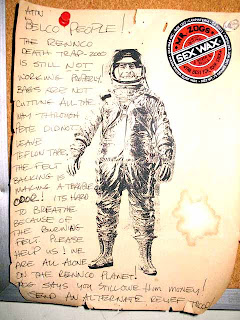 ATTN
BELCO PEOPLE!
THE RENNCO
DEATH TRAP-2000
IS STILL NOT
WORKING PROPERLY.
BAGS ARE NOT
CUTTING ALL THE
WAY THROUGH
PETE DID NOT
LEAVE
TEFLON TAPE,
THE FELT
BACKING IS
MAKING A TERRIBLE
ODOR! ITS HARD
TO BREATHE
BECAUSE OF
THE BURNING
FELT. PLEASE
HELP US! WE
ARE ALL ALONE
ON THE RENNCO PLANET!
SAYS YOU STILL OWE HIM MONEY!
SEND AN ALTERNATE RELIEF TROOP
MR. ZOGS
SEX WAX